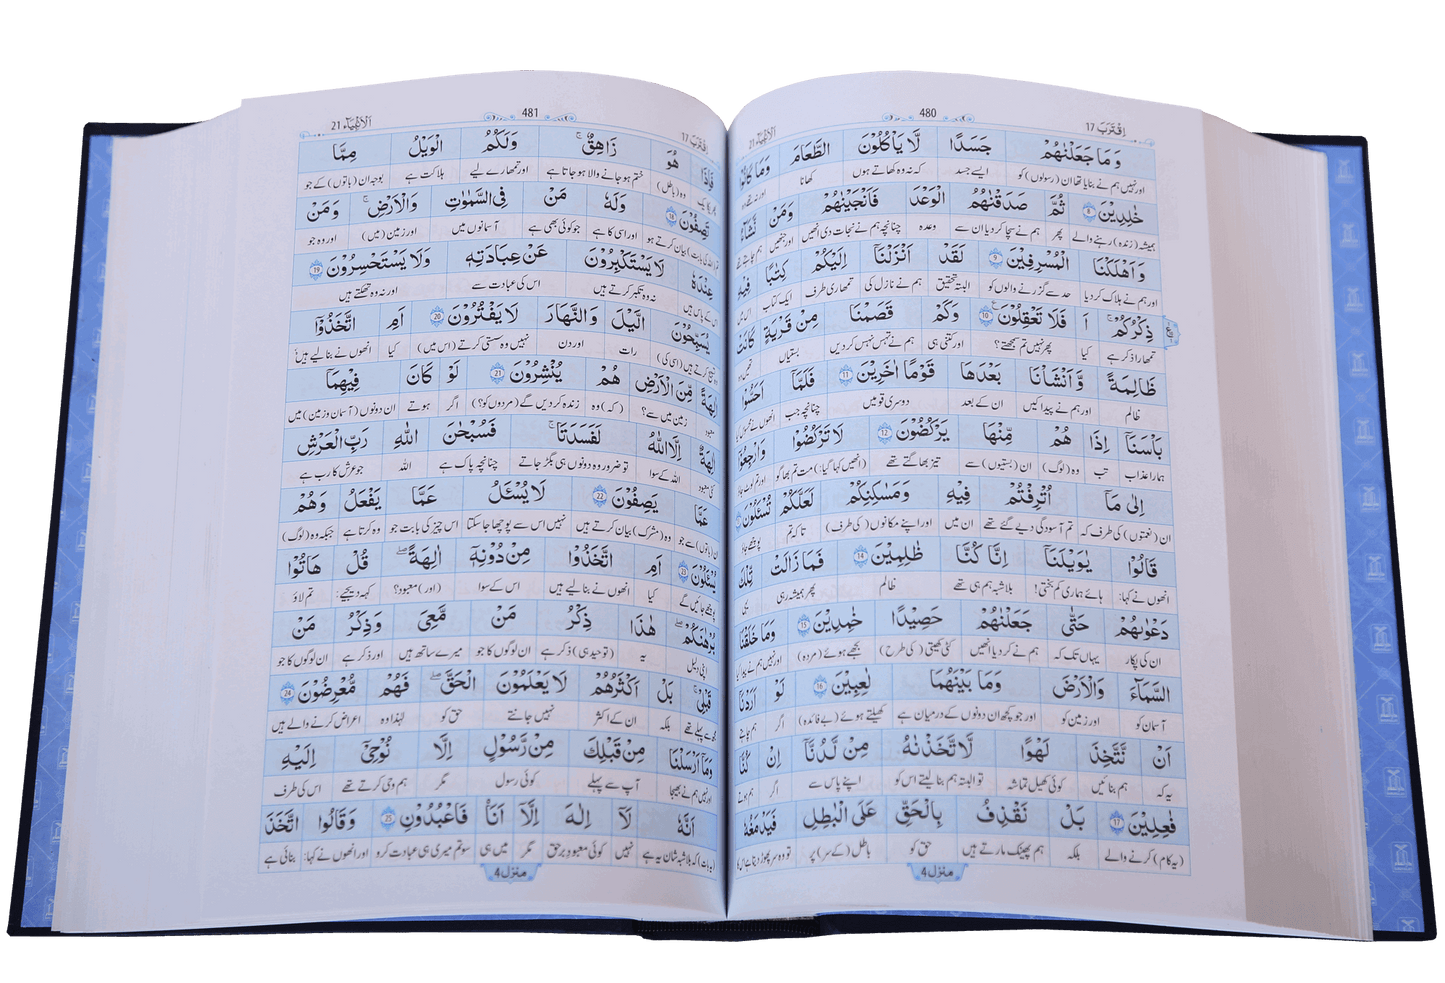 اِقْتَرَبَ 17
480
اَلْاَنْبِيَآء 21
وَ مَا جَعَلْنٰهُمْ جَسَدًا لَّا يَاْكُلُوْنَ الطَّعَامَ وَمَا كَانُوْا
اور نہیں ہم نے بنایا تھا ان (رسولوں) کو ایسے جسد کہ نہ وہ کھاتے ہوں کھانا
خٰلِدِيْنَ 8 ثُمَّ صَدَقْنٰهُمُ الْوَعْدَ فَاَنْجَيْنٰهُمْ وَمَنْ نَّشَآءُ
ہمیشہ (زندہ) رہنے والے پھر ہم نے سچا کر دیا ان سے وعدہ چنانچہ ہم نے نجات دی انھیں اور جنھیں ہم چاہتے تھے
وَ اَهْلَكْنَا الْمُسْرِفِيْنَ 9 لَقَدْ اَنْزَلْنَآ اِلَيْكُمْ كِتٰبًا فِيْهِ
اور ہم نے ہلاک کر دیا حد سے گزرنے والوں کو البتہ تحقیق ہم نے نازل کی تمھاری طرف ایک کتاب
ذِكْرُكُمْ اَ فَلَا تَعْقِلُوْنَ 10 وَكَمْ قَصَمْنَا مِنْ قَرْيَةٍ كَانَتْ
تمھارا ذکر ہے کیا پھر نہیں تم سمجھتے؟ اور کتنی ہی ہم نے تہس نہس کر دیں بستیاں
ظَالِمَةً وَّ اَنْشَاْنَا بَعْدَهَا قَوْمًا اٰخَرِيْنَ 11 فَلَمَّآ اَحَسُّوْا
ظالم اور ہم نے پیدا کیں ان کے بعد دوسری قومیں چنانچہ جب
بَاْسَنَآ اِذَا هُمْ مِّنْهَا يَرْكُضُوْنَ 12 لَا تَرْكُضُوْا وَارْجِعُوْٓا
ہمارا عذاب تب وہ (لوگ) ان (بستیوں) سے تیز بھاگتے تھے (انھیں کہا گیا:) مت تم بھاگو
اِلٰى مَآ اُتْرِفْتُمْ فِيْهِ وَمَسٰكِنِكُمْ لَعَلَّكُمْ تُسْئَلُوْنَ
ان (نعمتوں) کی طرف کہ تم آسودگی دیے گئے تھے ان میں اور اپنے مکانوں (کی طرف) تاکہ تم
قَالُوْا يٰوَيْلَنَآ اِنَّا كُنَّا ظٰلِمِيْنَ 14 فَمَا زَالَتْ تِّلْكَ
انھوں نے کہا: ہائے ہماری کم بختی! بلاشبہ ہم ہی تھے ظالم پھر ہمیشہ رہی یہی
دَعْوٰىهُمْ حَتّٰى جَعَلْنٰهُمْ حَصِيْدًا خٰمِدِيْنَ 15 وَمَا خَلَقْنَا
ان کی پکار یہاں تک کہ ہم نے کر دیا انھیں کٹی کھیتی (کی طرح) بجھے ہوئے (مردہ) اور نہیں ہم نے پیدا کیا
السَّمَآءَ وَالْاَرْضَ وَمَا بَيْنَهُمَا لٰعِبِيْنَ 16 لَوْ اَرَدْنَآ
آسمان کو اور زمین کو اور جو کچھ ان دونوں کے درمیان ہے کھیلتے ہوئے (بے فائدہ) اگر ہم چاہتے
اَنْ نَّتَّخِذَ لَهْوًا لَّاتَّخَذْنٰهُ مِنْ لَّدُنَّآ اِنْ كُنَّا
یہ کہ ہم بنائیں کوئی کھیل تماشہ تو البتہ ہم بنا لیتے اس کو اپنے پاس سے اگر ہم ہوتے
فٰعِلِيْنَ 17 بَلْ نَقْذِفُ بِالْحَقِّ عَلَى الْبَاطِلِ فَيَدْمَغُهٗ
(یہ کام) کرنے والے بلکہ ہم پھینک مارتے ہیں حق کو باطل (کے سر) پر
منزل 4
اِقْتَرَبَ 17
481
اَلْاَنْبِيَآء 21
فَاِذَا هُوَ زَاهِقٌ وَلَكُمُ الْوَيْلُ مِمَّا
وہ (باطل) ختم ہو جانے والا ہو جاتا ہے اور تمھارے لیے ہلاکت ہے بوجہ ان (باتوں) کے جو
تَصِفُوْنَ 18 وَلَهٗ مَنْ فِى السَّمٰوٰتِ وَالْاَرْضِ وَمَنْ
بیان کرتے ہو اور اسی کا ہے جو کوئی بھی ہے آسمانوں میں اور زمین (میں) اور وہ جو
عِنْدَهٗ لَا يَسْتَكْبِرُوْنَ عَنْ عِبَادَتِهٖ وَلَا يَسْتَحْسِرُوْنَ 19
اس کے پاس ہیں نہ وہ تکبر کرتے ہیں اس کی عبادت سے اور نہ وہ تھکتے ہیں
يُسَبِّحُوْنَ الَّيْلَ وَالنَّهَارَ لَا يَفْتُرُوْنَ 20 اَمِ اتَّخَذُوْٓا
رات اور دن نہیں وہ سستی کرتے (اس میں) کیا انھوں نے بنا لیے ہیں
اٰلِهَةً مِّنَ الْاَرْضِ هُمْ يُنْشِرُوْنَ 21 لَوْ كَانَ فِيْهِمَآ
معبود زمین میں سے؟ (کہ) وہ زندہ کر دیں گے (مردوں کو؟) اگر ہوتے ان دونوں (آسمان و زمین) میں
اٰلِهَةٌ اِلَّا اللّٰهُ لَفَسَدَتَا فَسُبْحٰنَ اللّٰهِ رَبِّ الْعَرْشِ
کئی معبود اللہ کے سوا تو ضرور وہ دونوں ہی بگڑ جاتے چنانچہ پاک ہے اللہ جو عرش کا رب ہے
عَمَّا يَصِفُوْنَ 22 لَا يُسْئَلُ عَمَّا يَفْعَلُ وَهُمْ
ان (باتوں) سے جو وہ (مشرک) بیان کرتے ہیں نہیں اس سے پوچھا جا سکتا اس چیز کی بابت جو وہ کرتا ہے جبکہ وہ (لوگ)
يُسْئَلُوْنَ 23 اَمِ اتَّخَذُوْا مِنْ دُوْنِهٖٓ اٰلِهَةً قُلْ هَاتُوْا
پوچھے جائیں گے کیا انھوں نے بنا لیے ہیں اس کے سوا (اور) معبود؟ کہہ دیجیے: تم لاؤ
بُرْهَانَكُمْ هٰذَا ذِكْرُ مَنْ مَّعِىَ وَذِكْرُ مَنْ
اپنی دلیل یہ (توحید ہی) ذکر ہے ان لوگوں کا جو میرے ساتھ ہیں اور ذکر ہے ان لوگوں کا جو
قَبْلِىْ بَلْ اَكْثَرُهُمْ لَا يَعْلَمُوْنَ الْحَقَّ فَهُمْ مُّعْرِضُوْنَ 24
مجھ سے پہلے تھے بلکہ ان کے اکثر نہیں جانتے حق کو لہٰذا وہ اعراض کرنے والے ہیں
وَمَآ اَرْسَلْنَا مِنْ قَبْلِكَ مِنْ رَّسُوْلٍ اِلَّا نُوْحِىْٓ اِلَيْهِ
اور نہیں ہم نے بھیجا آپ سے پہلے کوئی رسول مگر ہم وحی کرتے تھے اس کی طرف
اَنَّهٗ لَآ اِلٰهَ اِلَّآ اَنَا فَاعْبُدُوْنِ 25 وَقَالُوا اتَّخَذَ
کہ بلاشبہ شان یہ ہے نہیں کوئی معبود برحق مگر میں ہی سو تم میری ہی عبادت کرو اور انھوں نے کہا: بنائی ہے
منزل 4